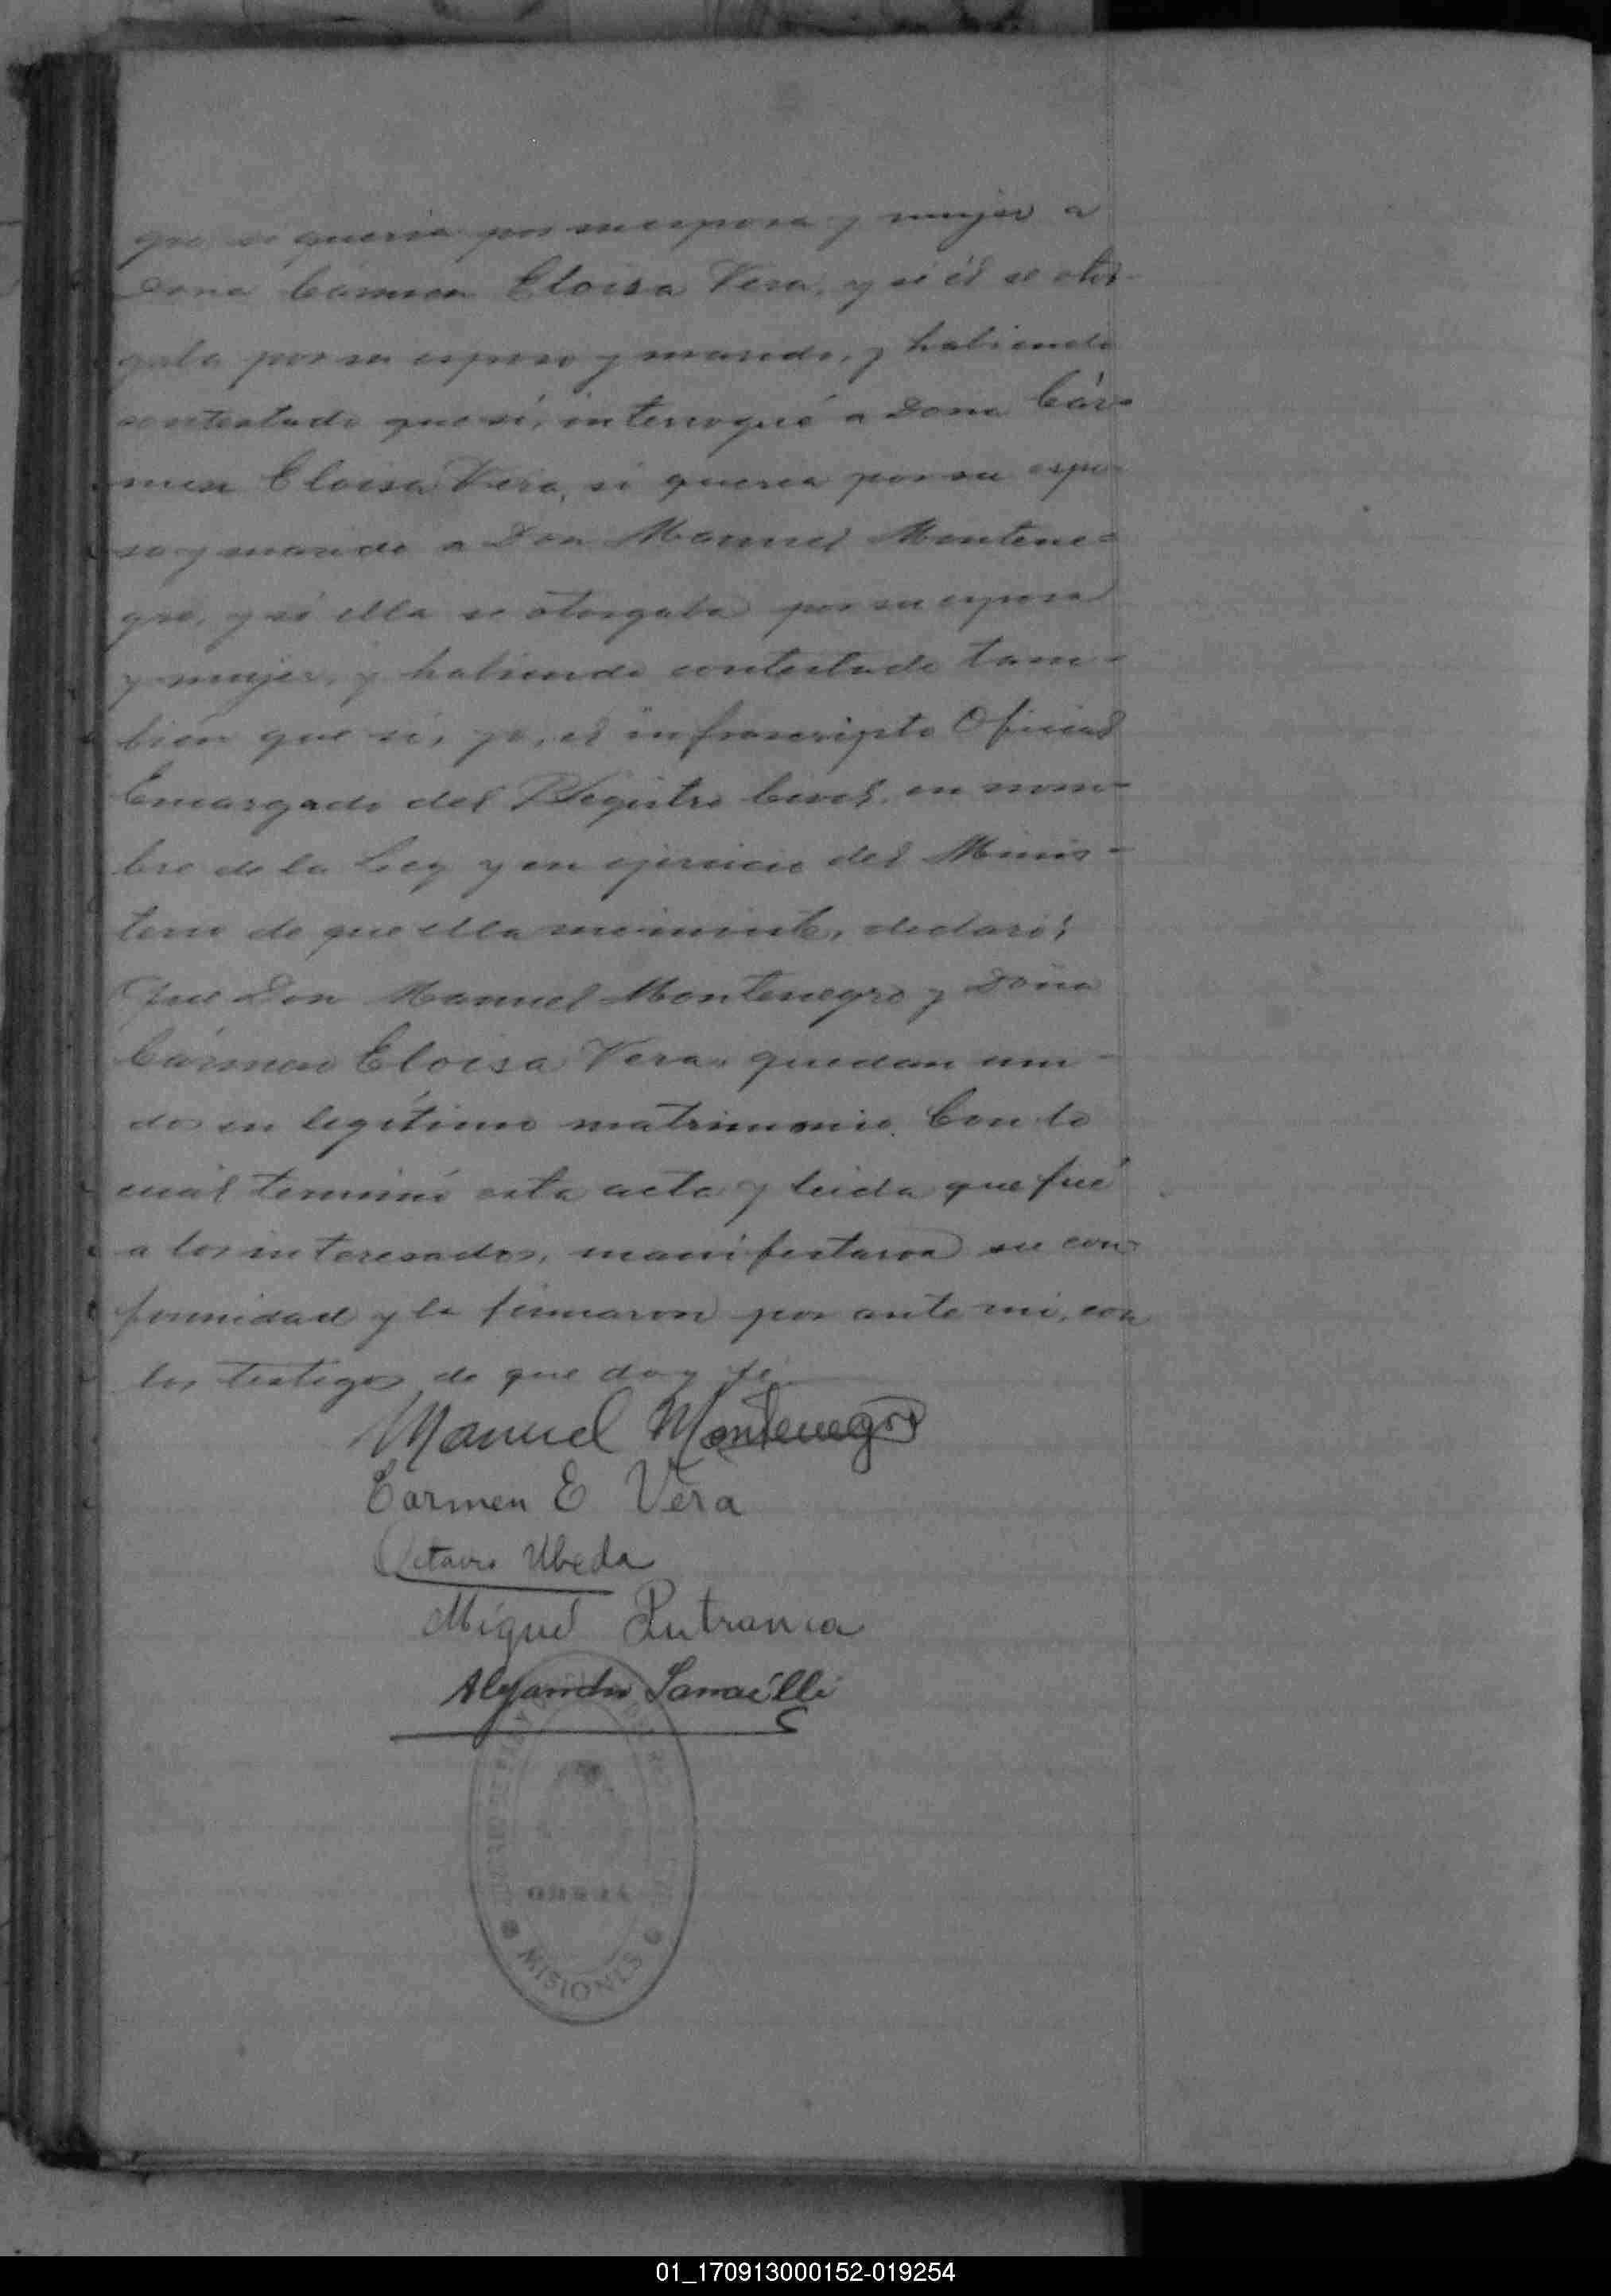 gro, si queria por su esposa y mujer a
Doña Cármen Eloisa Vera, y si él se otor-
gaba por su esposo y marido, y habiendo
contestado que sí, interrogué a Doña Cár-
men Eloisa Vera, si queria por su espo-
so y marido a Don Manuel Montene-
gro, y si ella se otorgaba por su esposa
y mujer, y habiendo contestado tam-
bién que sí, yo, el infrascripto Oficial
Encargado del Registro Civil, en nom-
bre de la Ley y en ejercicio del Minis-
terio de que ella me inviste, declaré:
Que Don Manuel Montenegro y Doña
Cármen Eloisa Vera, quedan uni-
dos en legítimo matrimonio. Con lo
cuál terminó esta acta y leida que fué
a los interesados, manifestaron su con-
formidad y la firmaron por ante mi, con
los testigos de que doy fé.
Manuel Montenegro
Carmen E Vera
Octavio Ubeda
Miguel
Alejandro
MISIONES
01_170913000152-019254